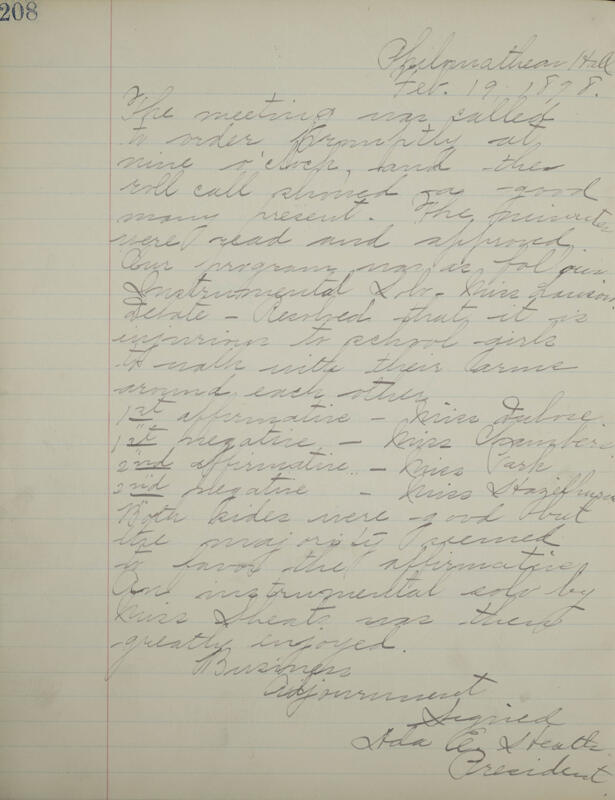 208
Philomathean Hall
Fev. 19. 1898.
The meeting was called
to order promptly at
nine o'clock, and the
roll call showed a good
many present. The minutes
were read and approved.
Our program was as follows
Instrumental Solo - Miss
Debate - Resolved that it is
injurious to school girls
to walk with their arms
around each other.
1st affirmative - Miss Dubose.
1st negative. - Miss
2nd affirmative. - Miss Park
2nd negative - Miss
Both sides were good but
the majority seemed
to favor the affirmative
An instrumental solo by
Miss Sheats was then
greatly enjoyed.
Business
Adjournment
Signed
Ada E. Heath.
President.